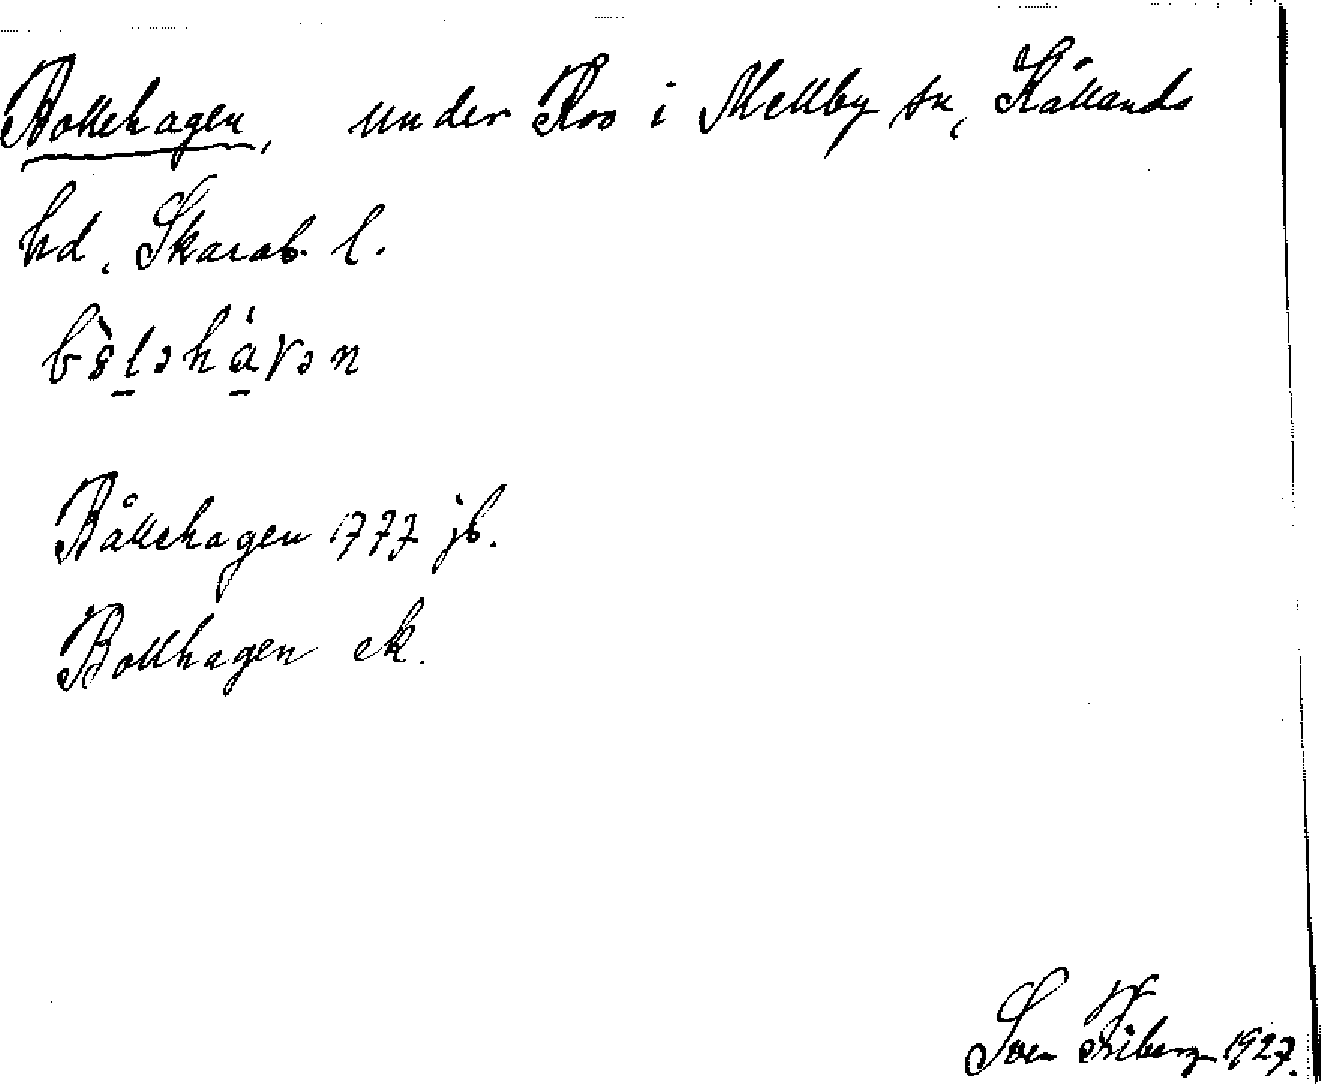 Bollehagen, under Roo i Mellby sn, Kållands
hd, Skarab. l.
Bållehagen 1777 jb.
Bollhagen ek.
Sven Friberg 1927.